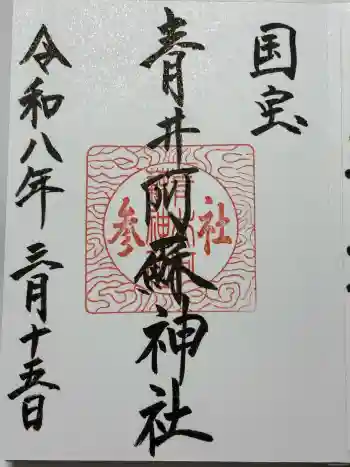 国宝
青井阿蘇神社
参社
令和八年三月十五日